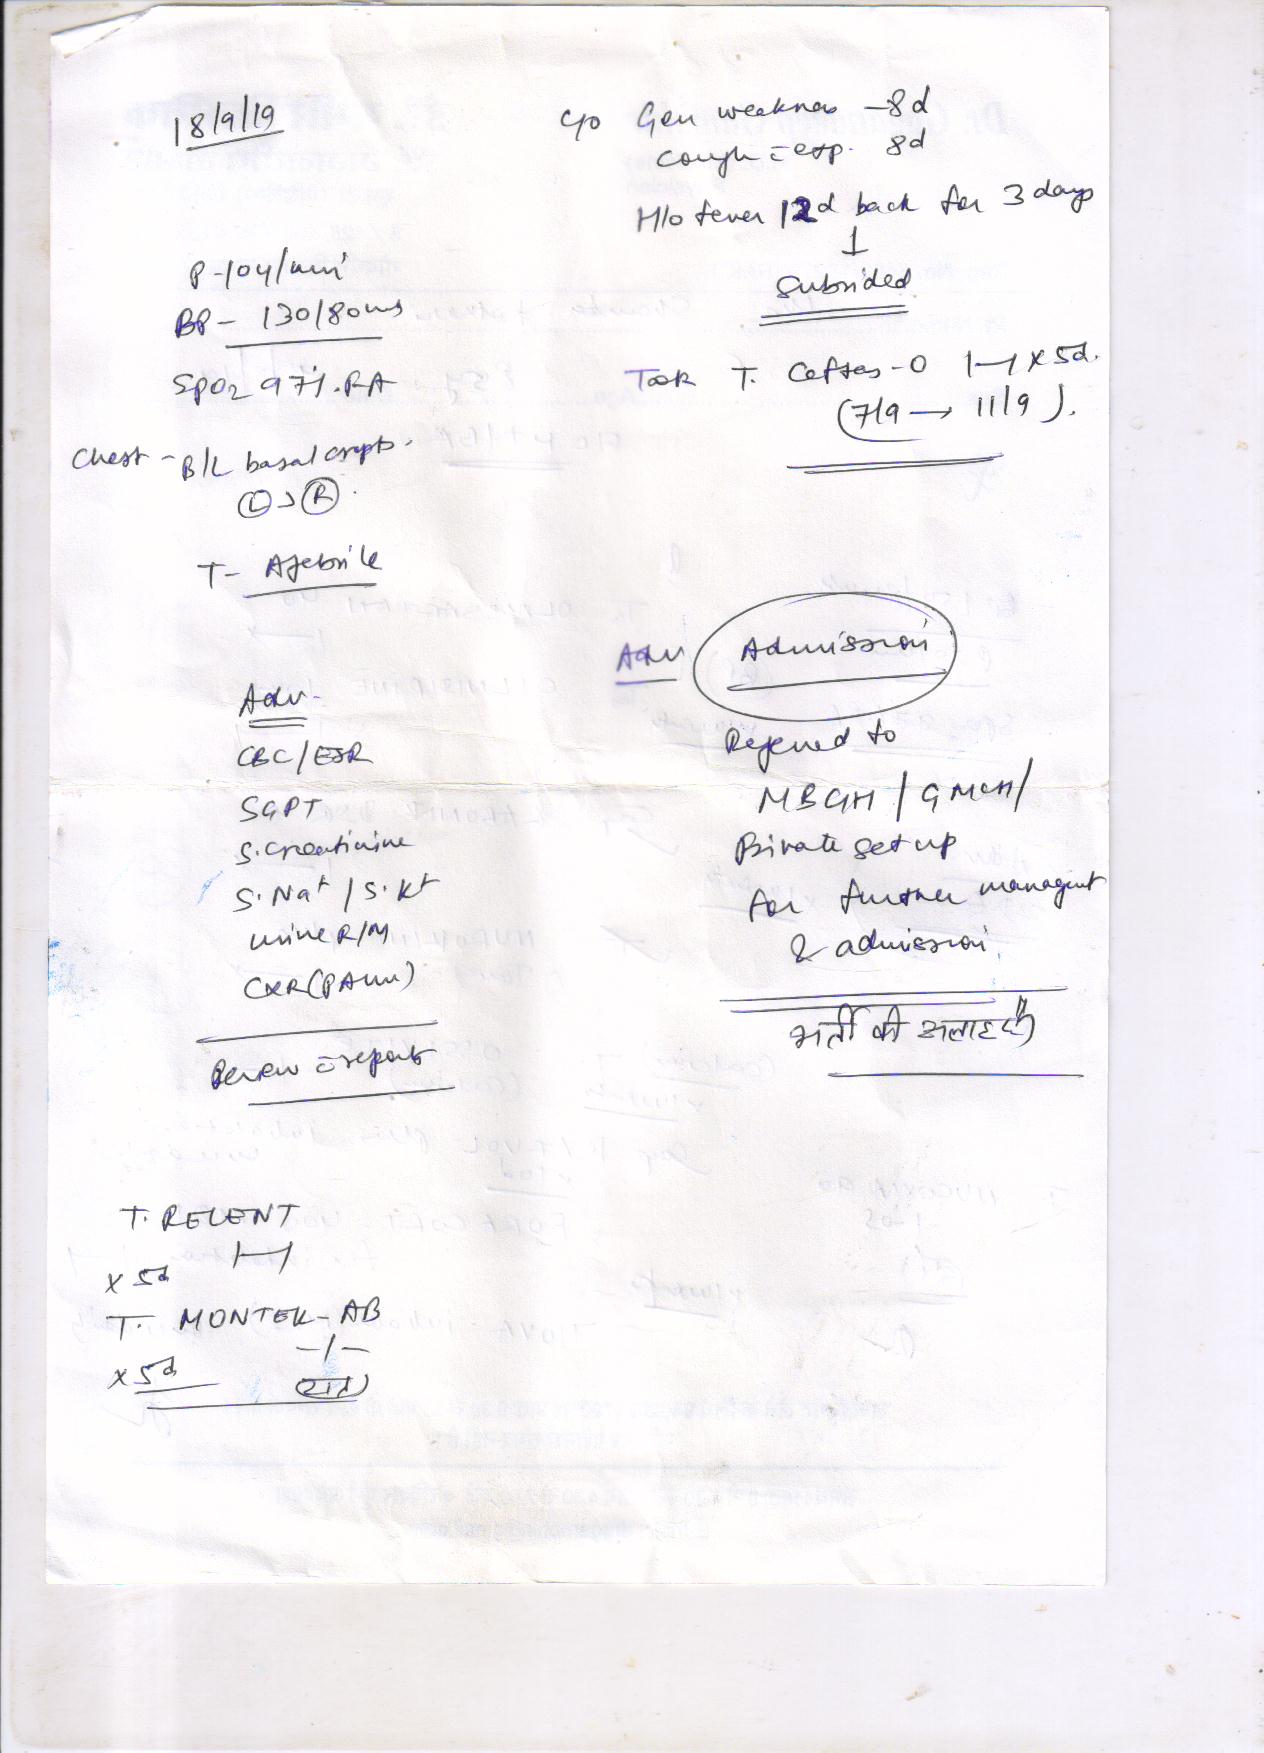 18/9/19
c/o Gen weakness - 8d
cough c exp. 8d
H/o fever 12d back for 3 days
↓
Subsided
P - 104/min
BP - 130/80
SpO2 97%. RA
Took T. Ceftas-O 1—1 x 5d.
(7/9 → 11/9).
Chest - B/L basal crepts.
Ⓛ > Ⓡ.
T - Afebrile
Adv Admission
Referred to
MBGH / GMCH /
Private set up
for further managment
& admission.
भर्ती की सलाह दी
Adv -
CBC/ESR
SGPT
S. Creatinine
S. Na+ / S. K+
urine R/M
CXR (PA view)
Review c reports
T. RELENT
1—1
x 5d
T. MONTEK-AB
-/-
x 5d